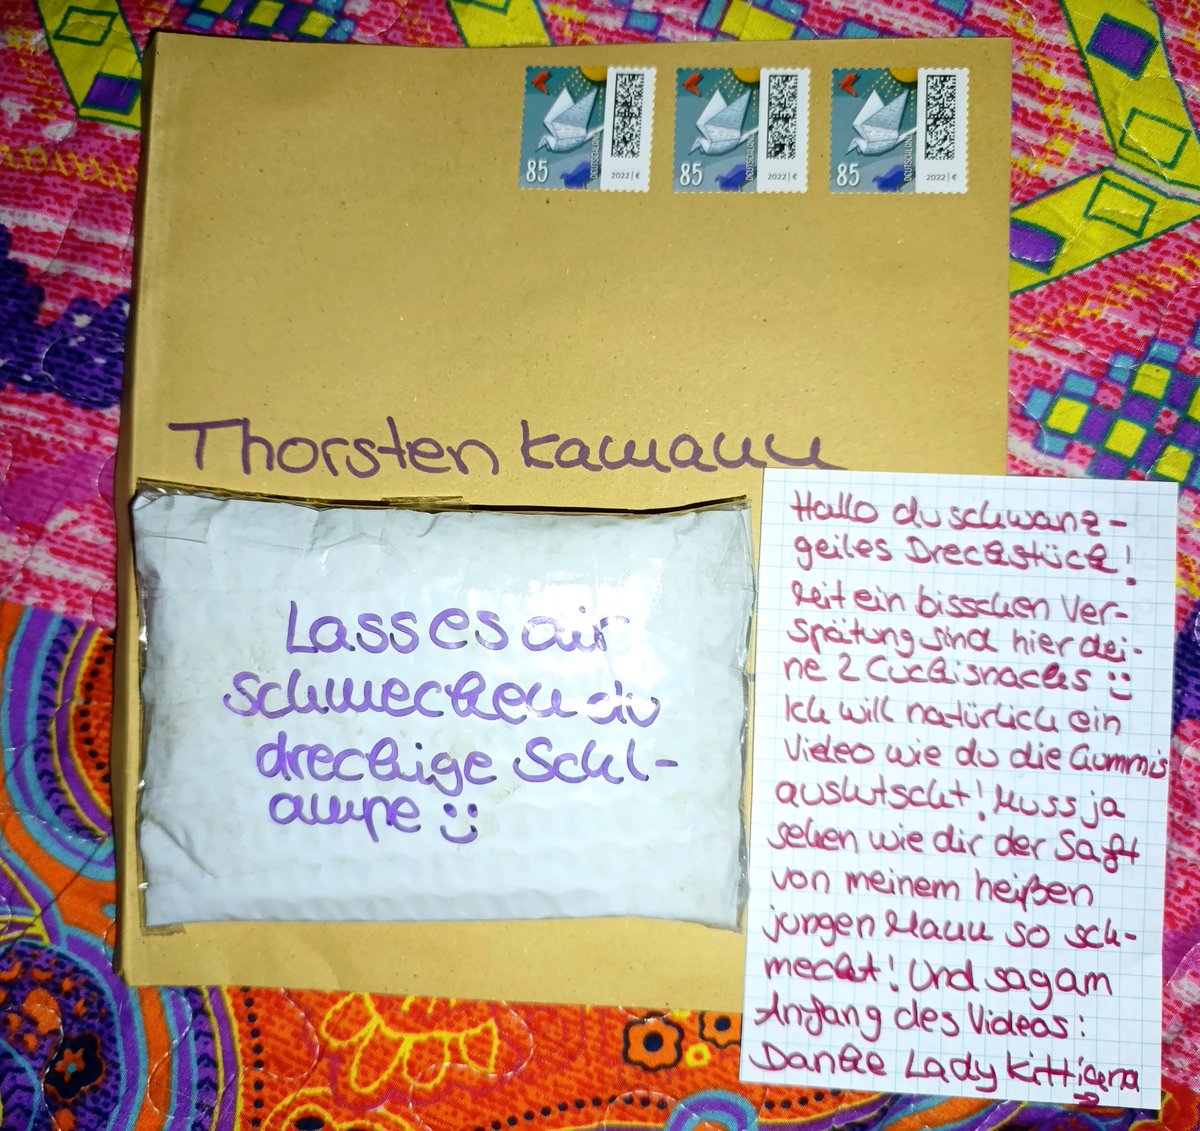 85
DEUTSCHLAND
2022 | €
85
DEUTSCHLAND
2022 | €
85
DEUTSCHLAND
2022 | €
Thorsten Kamann
Lass es dir
schmecken du
dreckige Schl-
ampe :)
Hallo du schwanz-
geiles Dreckstück!
Mit ein bisschen Ver-
spätung sind hier dei-
ne 2 Cuckisnacks :)
Ich will natürlich ein
Video wie du die Gummis
auslutscht! Muss ja
sehen wie dir der Saft
von meinem heißen
jungen Mann so sch-
meckt! Und sag am
Anfang des Videos:
Danke Lady Kitti